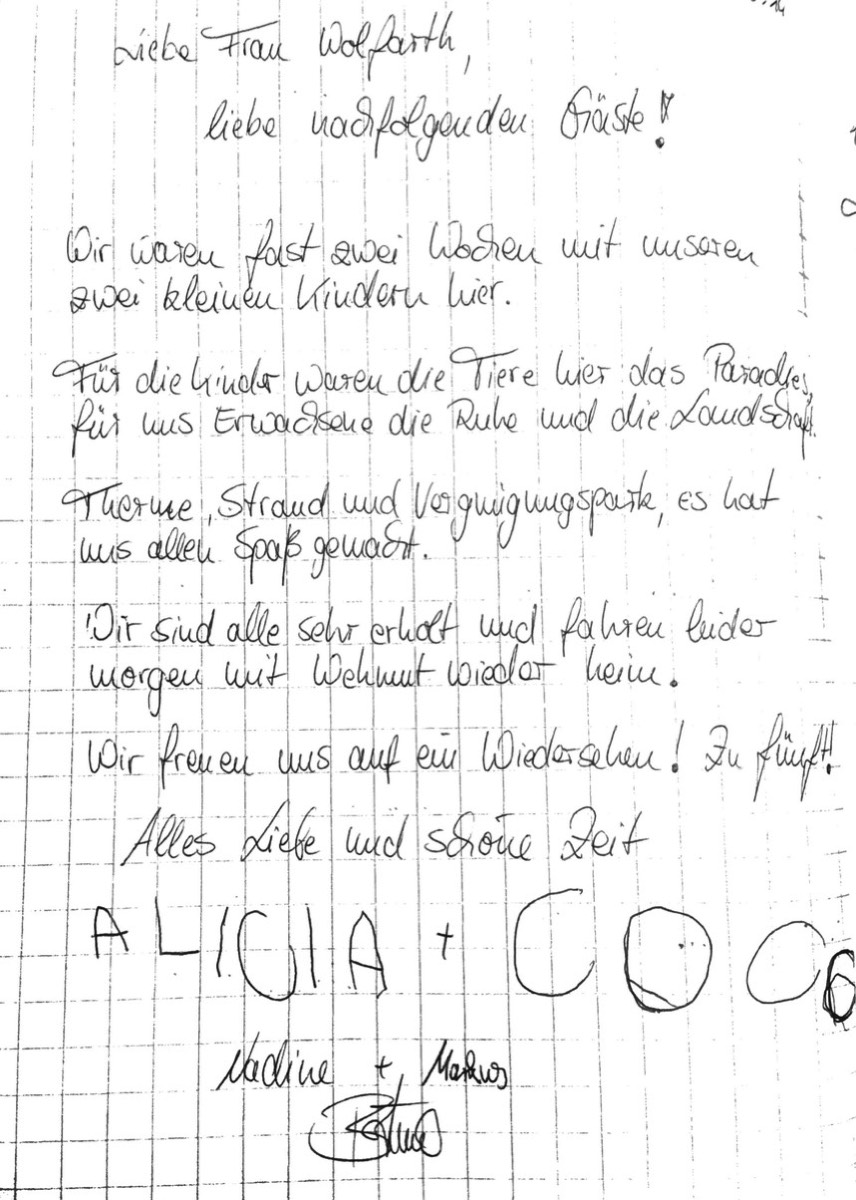 Liebe Frau Wolfarth,
liebe nachfolgenden Gäste!
Wir waren fast zwei Wochen mit unseren
zwei kleinen Kindern hier.
Für die Kinder waren die Tiere hier das Paradies,
für uns Erwachsene die Ruhe und die Landschaft.
Therme, Strand und Vergnügungspark, es hat
uns allen Spaß gemacht.
Wir sind alle sehr erholt und fahren leider
morgen mit Wehmut wieder heim.
Wir freuen uns auf ein Wiedersehen! Zu fünft!
Alles Liebe und schöne Zeit
ALICIA + COCO
Nadine + Markus